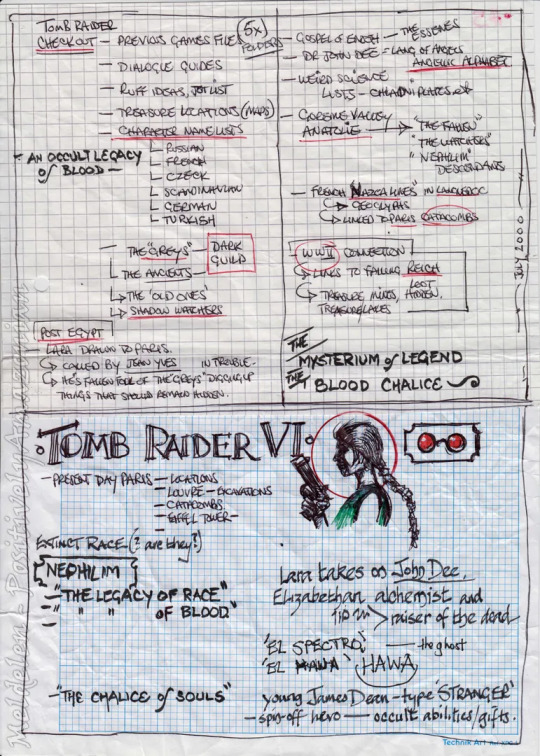 TOMB RAIDER
CHECKOUT — PREVIOUS GAMES FILES (5x) FOLDERS
— DIALOGUE GUIDES
— RUFF IDEAS, JOT LIST
— TREASURE LOCATIONS (MAPS)
— CHARACTER NAME LISTS
RUSSIAN
FRENCH
CZECK
SCANDINAVIAN
GERMAN
TURKISH
— AN OCCULT LEGACY
of BLOOD —
— THE "GREYS" — DARK
GUILD
— THE ANCIENTS
THE 'OLD ONES'
SHADOW WATCHERS
POST EGYPT
— LARA DRAWN TO PARIS.
CALLED BY JEAN YVES IN TROUBLE.
HE'S FALLEN FOUL OF THE 'GREYS' DIGGING UP
THINGS THAT SHOULD REMAIN HIDDEN.
— GOSPEL OF ENOCH — THE ESSENES
— DR JOHN DEE = LANG OF ANGELS
ANGELIC ALPHABET
— WEIRD SCIENCE
LISTS — CHLADNI PLATES
— GOREME VALLEY
ANATOLIE — "THE FALLEN"
"THE WATCHERS"
"NEPHILIM"
DESCENDANTS
— FRENCH NAZCA LINES" IN LANGUEDOC
GEOGLYPHS
LINKED TO PARIS CATACOMBS
— WWII CONNECTION
LINKS TO FALLING REICH
LOOT
TREASURE, MINES, HIDDEN.
TREASURE LAKES
JULY 2000
THE MYSTERIUM of LEGEND
THE BLOOD CHALICE
TOMB RAIDER VI.
— PRESENT DAY PARIS — LOCATIONS
— LOUVRE — EXCAVATIONS
— CATACOMBS
— EIFFEL TOWER —
EXTINCT RACE (? are they?)
NEPHILIM
— "THE LEGACY OF RACE"
— " " " OF BLOOD"
— "THE CHALICE of SOULS"
Lara takes on John Dee,
Elizabethan alchemist and
raiser of the dead
'EL SPECTRO' — the ghost
'EL HAWA' HAWA
young James Dean-type 'STRANGER'
— spin-off hero — occult abilities/gifts.
Technik Art